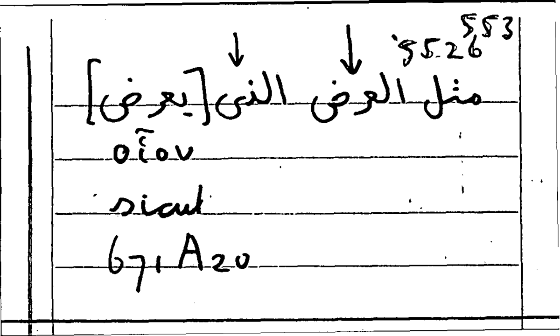 553
55.26
مثل العرض الذى [يعرض]
οἷον
sicut
671A20